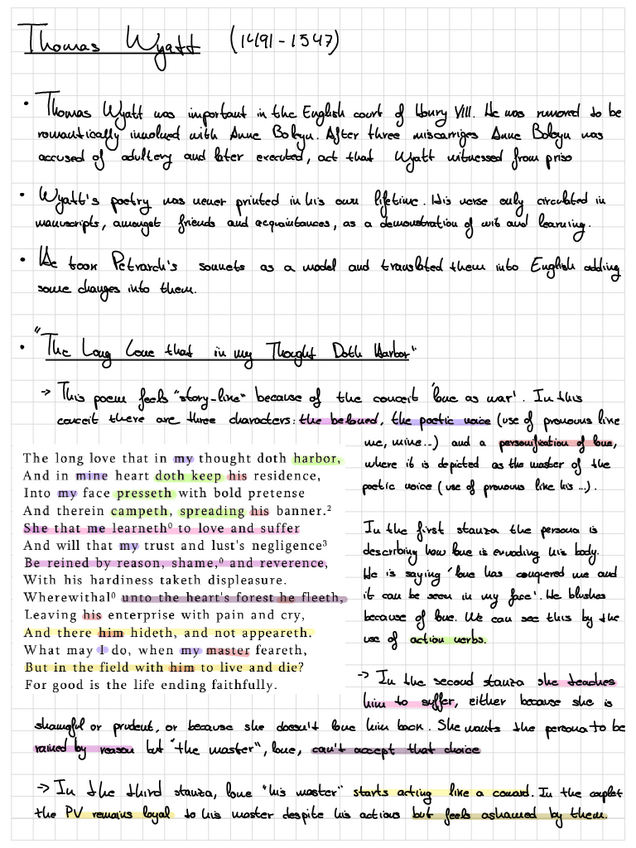 Thomas Wyatt (1491-1547)
• Thomas Wyatt was important in the English court of Henry VIII. He was rumored to be
romantically involved with Anne Boleyn. After three miscarriges Anne Boleyn was
accused of adultery and later executed, act that Wyatt witnessed from priso
• Wyatt's poetry was never printed in his own lifetime. His verse only circulated in
manuscripts, amongst friends and acquaintances, as a demonstration of wit and learning.
• He took Petrarch's sonnets as a model and translated them into English adding
some changes into them.
• "The Long Love that in my Thought Doth Harbor"
→ This poem feels "story-like" because of the conceit 'love as war'. In this
conceit there are three characters: the beloved, the poetic voice (use of pronouns like
me, mine...) and a personification of love,
where it is depicted as the master of the
poetic voice (use of pronouns like his ...).
The long love that in my thought doth harbor,
And in mine heart doth keep his residence,
Into my face presseth with bold pretense
And therein campeth, spreading his banner.²
She that me learneth⁰ to love and suffer
And will that my trust and lust's negligence³
Be reined by reason, shame,⁰ and reverence,
With his hardiness taketh displeasure.
Wherewithal⁰ unto the heart's forest he fleeth,
Leaving his enterprise with pain and cry,
And there him hideth, and not appeareth.
What may I do, when my master feareth,
But in the field with him to live and die?
For good is the life ending faithfully.
In the first stanza the persona is
describing how love is invading his body.
He is saying 'love has conquered me and
it can be seen in my face'. He blushes
because of love. We can see this by the
use of action verbs.
→ In the second stanza she teaches
him to suffer, either because she is
shameful or prudent, or because she doesn't love him back. She wants the persona to be
rained by reason but "the master", love, can't accept that choice
→ In the third stanza, love "his master" starts acting like a coward. In the couplet
the PV remains loyal to his master despite his actions but feels ashamed by them.